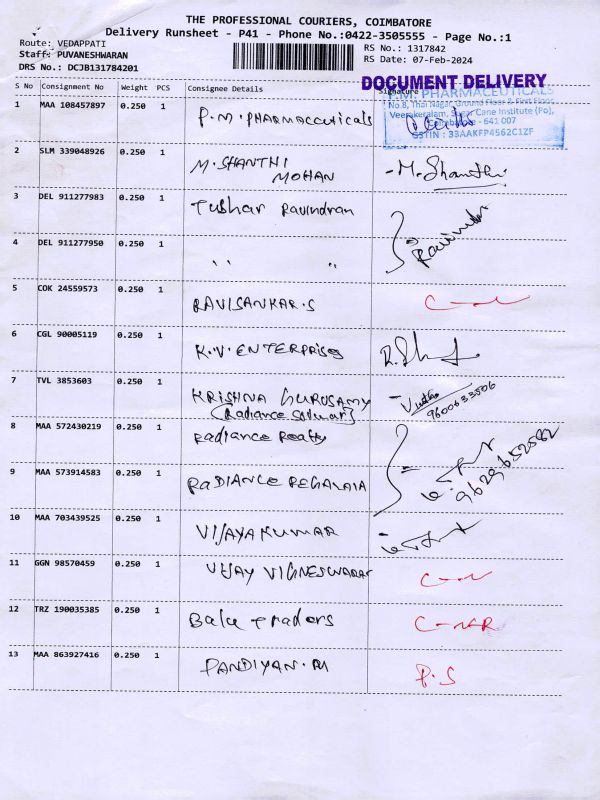 THE PROFESSIONAL COURIERS, COIMBATORE
Delivery Runsheet - P41 - Phone No.:0422-3505555 - Page No.:1
Route: VEDAPPATI
RS No.: 1317842
Staff: PUVANESHWARAN
RS Date: 07-Feb-2024
DRS No.: DCJB131784201
DOCUMENT DELIVERY
S No Consignment No Weight PCS Consignee Details Signature
1 MAA 108457897 0.250 1 P.M.PHARMACEUTICALS
P.M. PHARMACEUTICALS
No.8, Thai Nagar, Ground Floor & First Floor,
Veerakeralam, Cane Institute (Po),
641 007
GSTIN : 33AAKFP4562C1ZF
2 SLM 339048926 0.250 1 M.SHANTHI
MOHAN
-M.Shanthi
3 DEL 911277983 0.250 1 Tushar Ravindran
4 DEL 911277950 0.250 1 " "
Ravindr
5 COK 24559573 0.250 1 RAVISANKAR.S
6 CGL 90005119 0.250 1 K.V.ENTERPRISES
7 TVL 3853603 0.250 1 KRISHNA GURUSAMY
9600633506
8 MAA 572430219 0.250 1 Radiance Realty
9 MAA 573914583 0.250 1 RADIANCE REGALAIA
9629652582
10 MAA 703439525 0.250 1 VIJAYAKUMAR
11 GGN 98570459 0.250 1 VIJAY VIGNESWARAR
12 TRZ 190035385 0.250 1 Balu traders
13 MAA 863927416 0.250 1 PANDIYAN.M P.S